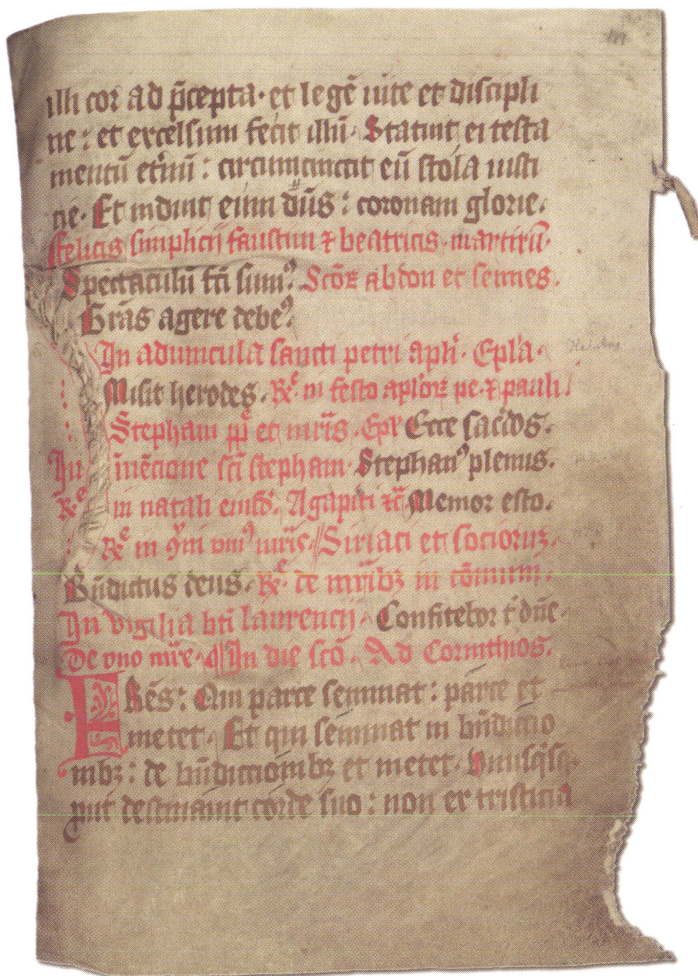 illi cor ad p̄cepta · et legē uite et discipli
ne : et excelsum fecit illū · Statuit ei testa
mentū et̄nū : circumcinxit eū stola iusti
cie · Et induit eum dn̄s : coronam glorie ·
felicis simplicij faustini ⁊ beatricis · martirū ·
Spectaculū fc̄i sumꝰ Scōꝝ abdon et sennes ·
Grās agere debeꝰ
In aduincula sancti petri apl̄i · Epl̄a ·
Misit herodes · R̄ in festo apl̄oꝝ pe · ⁊ pauli
Stephani pp̄ et mr̄is · Ep̄l Ecce sac̄dos ·
In inēcione sc̄i stephani · Stephanꝰ plenus ·
R̄ in natali eiusd̄ · Agapiti Memor esto ·
R̄ in ꝯm̄i vniꝰ mr̄is Siriaci et socioruꝫ ·
Bn̄dictus deus · R̄ de mr̄ibꝫ in cōmuni ·
In vigilia bt̄i laurencij · Confitebor t̄ dn̄e ·
De vno mr̄e · In die sc̄o · Ad Corinthios ·
FRēs : Qui parce seminat : parce et
metet · Et qui seminat in bn̄dictio
nibꝫ : de bn̄dictionibꝫ et metet · Vnusq̄sqꝫ
put destinauit corde suo : non ex tristicia